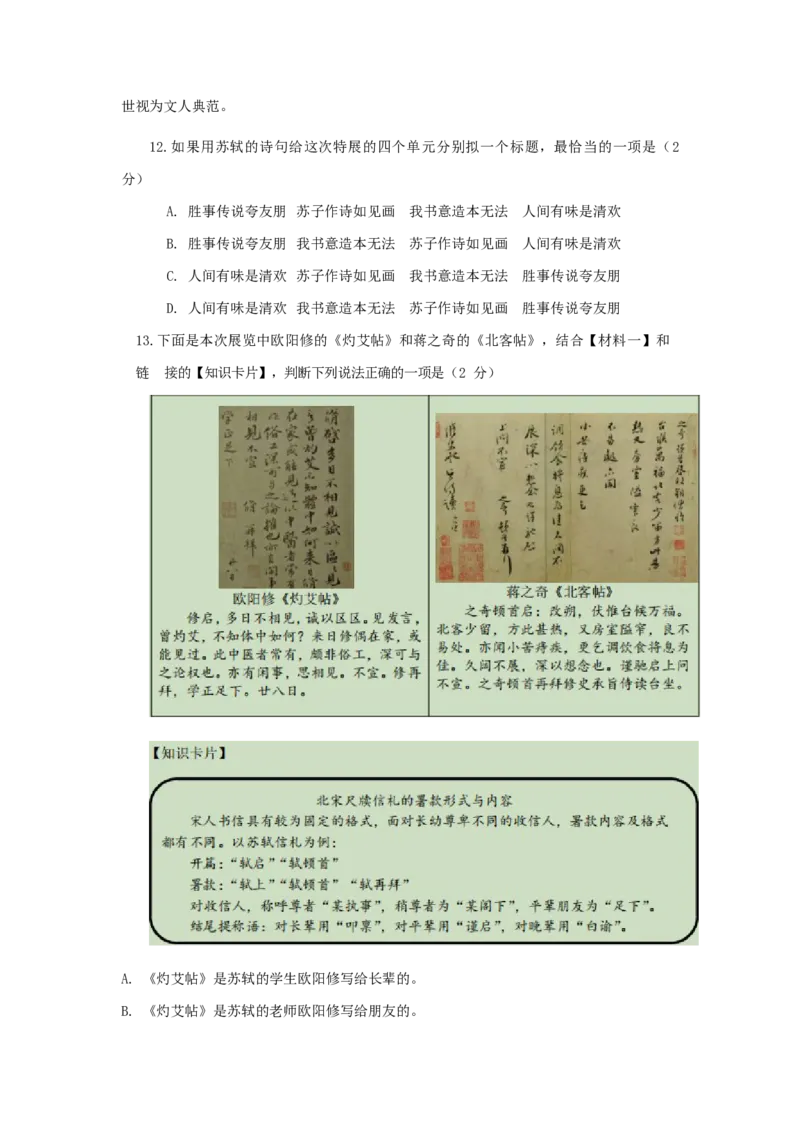 世视为文人典范。
12.如果用苏轼的诗句给这次特展的四个单元分别拟一个标题，最恰当的一项是（2
分）
A. 胜事传说夸友朋 苏子作诗如见画 我书意造本无法 人间有味是清欢
B. 胜事传说夸友朋 我书意造本无法 苏子作诗如见画 人间有味是清欢
C. 人间有味是清欢 苏子作诗如见画 我书意造本无法 胜事传说夸友朋
D. 人间有味是清欢 我书意造本无法 苏子作诗如见画 胜事传说夸友朋
13.下面是本次展览中欧阳修的《灼艾帖》和蒋之奇的《北客帖》，结合【材料一】和
链 接的【知识卡片】，判断下列说法正确的一项是（2 分）
欧阳修《灼艾帖》
修启，多日不相见，诚以区区。见发言，
曾灼艾，不知体中如何？来日修偶在家，或
能见过。此中医者常有，颇非俗工，深可与
之论权也。亦有闲事，思相见。不宣。修再
拜，学正足下。廿八日。
蒋之奇《北客帖》
之奇顿首启：改朔，伏惟台候万福。
北客少留，方此甚热，又房室隘窄，良不
易处。亦闻小苦痔疾，更乞调饮食将息为
佳。久阔不展，深以想念也。谨驰启上问
不宣。之奇顿首再拜修史承旨侍读台坐。
【知识卡片】
北宋尺牍信札的署款形式与内容
宋人书信具有较为固定的格式，面对长幼尊卑不同的收信人，署款内容及格式
都有不同。以苏轼信札为例：
开篇：“轼启”“轼顿首”
署款：“轼上”“轼顿首” “轼再拜”
对收信人，称呼尊者“某执事”，稍尊者为“某阁下”，平辈朋友为“足下”。
结尾提称语：对长辈用“叩禀”，对平辈用“谨启”，对晚辈用“白谕”。
A. 《灼艾帖》是苏轼的学生欧阳修写给长辈的。
B. 《灼艾帖》是苏轼的老师欧阳修写给朋友的。